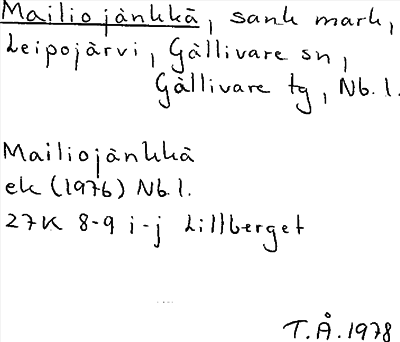 Mailiojänkkä, sank mark,
Leipojärvi, Gällivare sn,
Gällivare tg, Nb. l.
Mailiojänkkä
ek (1976) Nb l.
27K 8-9 i-j Lillberget
T.Å. 1978